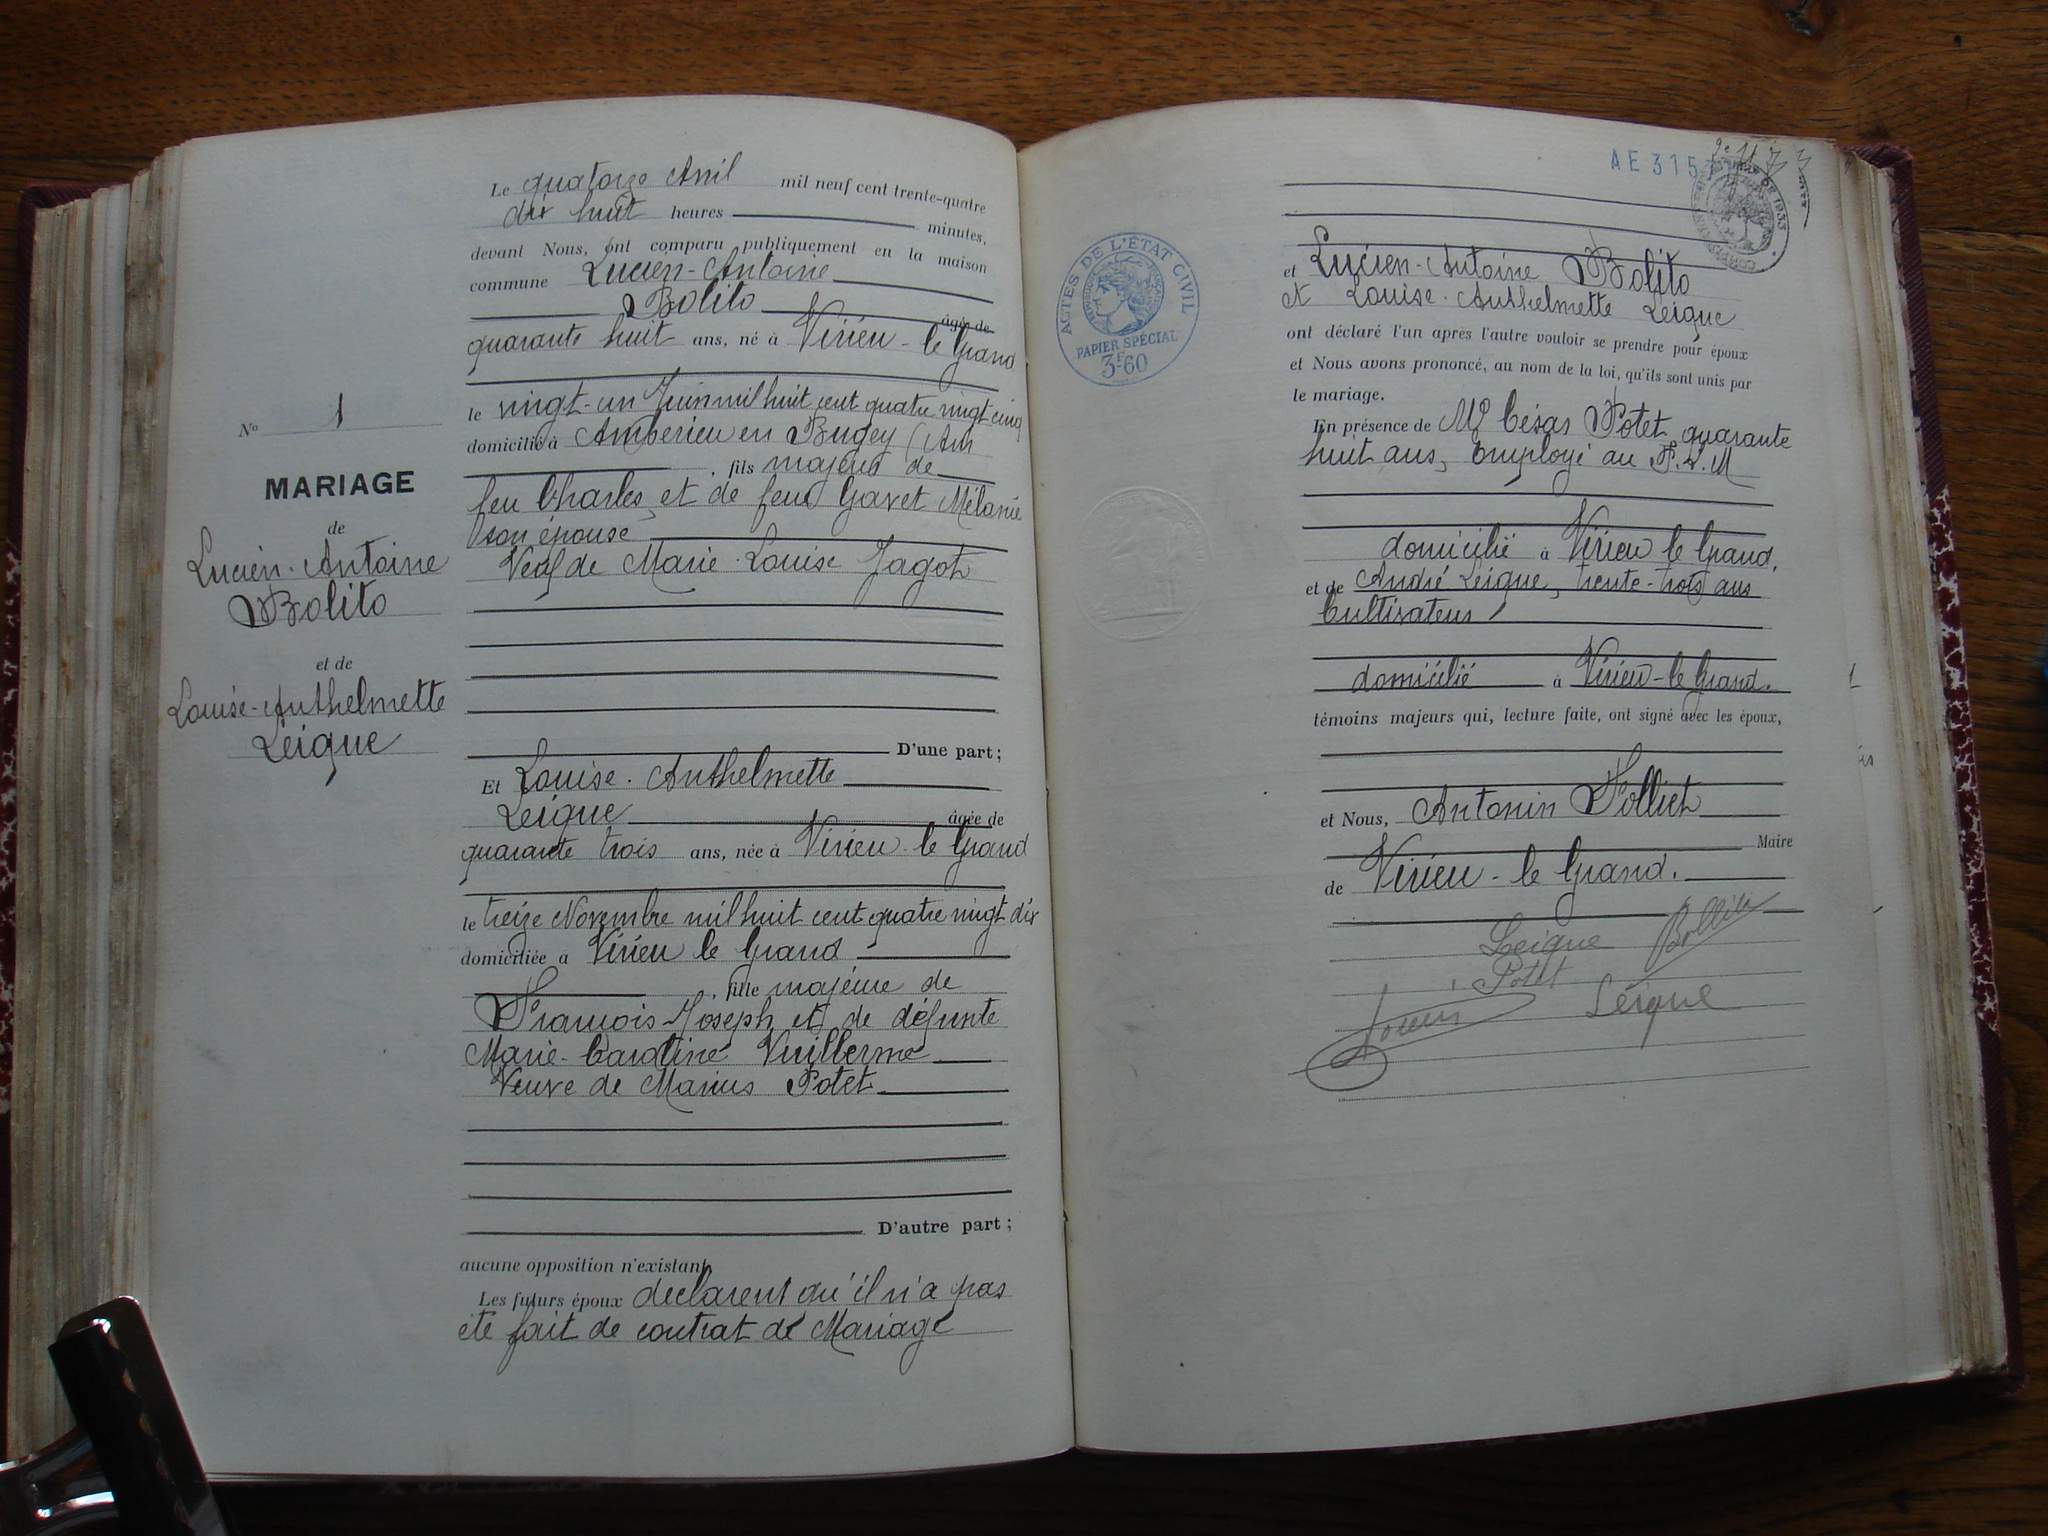 Le quatorze Avril mil neuf cent trente-quatre
dix huit heures minutes,
devant Nous, ont comparu publiquement en la maison
commune Lucien-Antoine
Bolito âgé de
quarante huit ans, né à Virieu-le Grand
le vingt-un Juin mil huit cent quatre vingt cinq
domicilié à Ambérieu en Bugey (Ain
, fils majeur de
feu Charles, et de feue Gavet Mélanie
son épouse
Veuf de Marie-Louise Jagot
No 1
MARIAGE
de
Lucien-Antoine
Bolito
et de
Louise-Anthelmette
Leigue
D'une part;
Et Louise-Anthelmette
Leigue âgée de
quarante trois ans, née à Virieu-le Grand
le treize Novembre mil huit cent quatre vingt dix
domiciliée à Virieu le Grand
, fille majeure de
François-Joseph et de défunte
Marie-Caroline Vuillerme
Veuve de Marius Potet
D'autre part;
aucune opposition n'existant,
Les futurs époux declarent qu'il n'a pas
ete fait de contrat de Mariage
AE 3157
ACTES DE L'ÉTAT CIVIL
PAPIER SPÉCIAL
3F60
et Lucien-Antoine Bolito
et Louise-Anthelmette Leigue
ont déclaré l'un après l'autre vouloir se prendre pour époux
et Nous avons prononcé, au nom de la loi, qu'ils sont unis par
le mariage.
En présence de Mr César Potet quarante
huit ans, Employé au P.L.M
domicilié à Virieu le Grand,
et de André Leigue, trente-trois ans
Cultivateur
domicilié à Virieu-le Grand.
témoins majeurs qui, lecture faite, ont signé avec les époux,
et Nous, Antonin Folliet
Maire
de Virieu-le Grand.
Leigue
Potet
Leigue